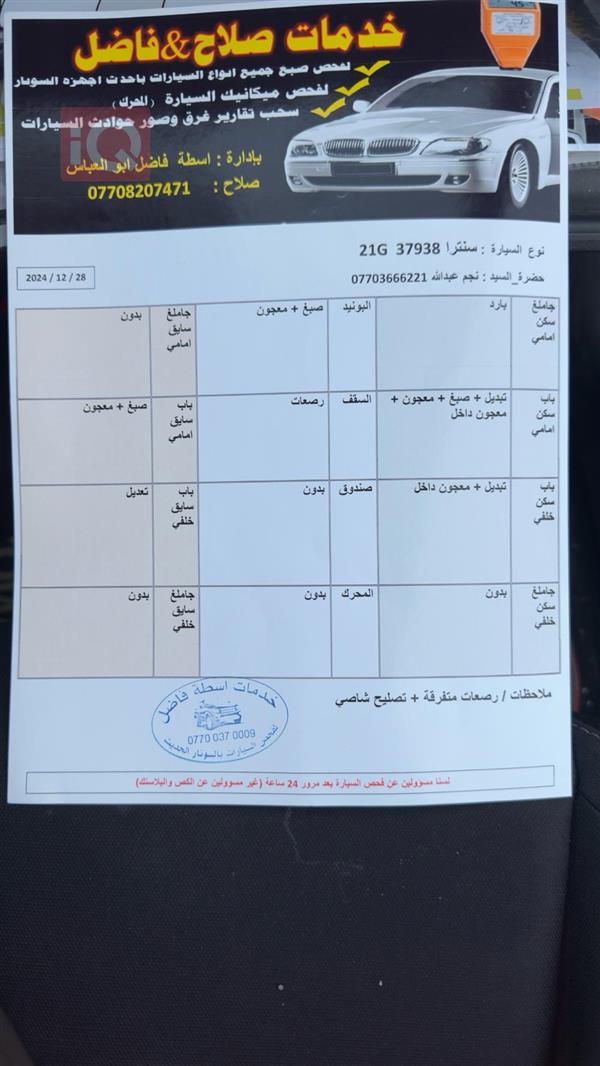 خدمات صلاح&فاضل
لفحص صبغ جميع انواع السيارات باحدث اجهزة السونار
لفحص ميكانيك السيارة (المحرك)
سحب تقارير غرق وصور حوادث السيارات
بإدارة : اسطة فاضل ابو العباس
صلاح : 07708207471
iQ
نوع السيارة : سنترا 37938 21G
حضرة_السيد : نجم عبدالله 07703666221
2024 / 12 / 28
جاملغ سكن امامي
بارد
البونيد
صبغ + معجون
جاملغ سايق امامي
بدون
باب سكن امامي
تبديل + صبغ + معجون + معجون داخل
السقف
رصعات
باب سايق امامي
صبغ + معجون
باب سكن خلفي
تبديل + معجون داخل
صندوق
بدون
باب سايق خلفي
تعديل
جاملغ سكن خلفي
بدون
المحرك
بدون
جاملغ سايق خلفي
بدون
ملاحظات / رصعات متفرقة + تصليح شاصي
خدمات اسطة فاضل
0770 037 0009
لفحص السيارات بالسونار الحديث
لسنا مسوولين عن فحص السيارة بعد مرور 24 ساعة (غير مسوولين عن الكص والبلاستك)